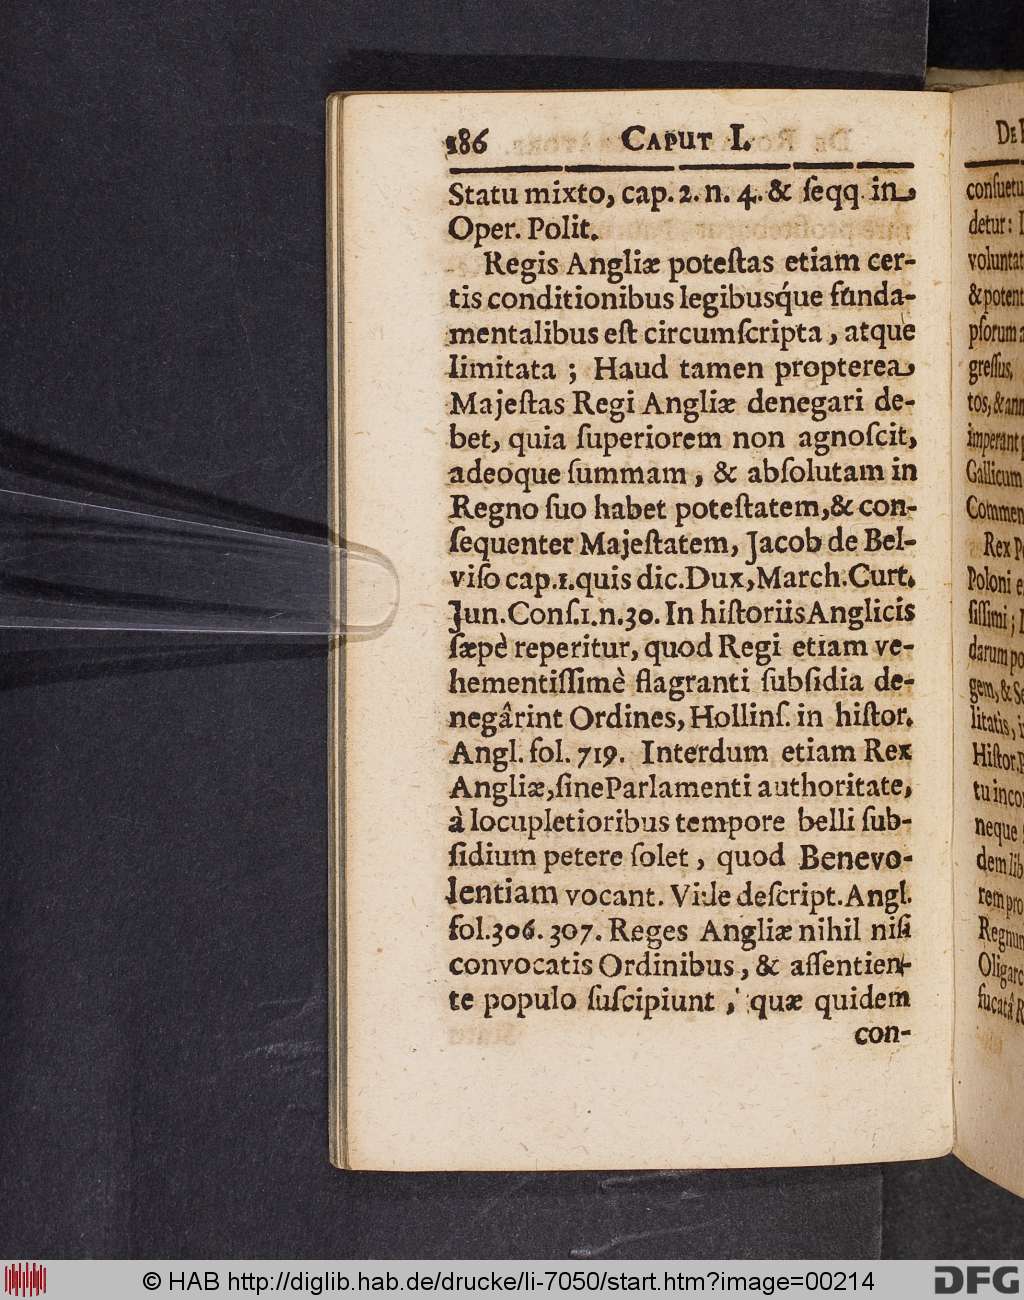 186 CAPUT I.
Statu mixto, cap. 2. n. 4. & ſeqq. in
Oper. Polit.
Regis Angliæ poteſtas etiam cer-
tis conditionibus legibusq́ue funda-
mentalibus eſt circumſcripta, atque
limitata ; Haud tamen propterea
Majeſtas Regi Angliæ denegari de-
bet, quia ſuperiorem non agnoſcit,
adeoque ſummam, & abſolutam in
Regno ſuo habet poteſtatem,& con-
ſequenter Majeſtatem, Jacob de Bel-
viſo cap.1.quis dic.Dux, March. Curt.
Jun.Conſ.1.n.30. In hiſtoriis Anglicis
ſæpè reperitur, quod Regi etiam ve-
hementiſſimè flagranti ſubſidia de-
negârint Ordines, Hollinſ. in hiſtor.
Angl. fol. 719. Interdum etiam Rex
Angliæ, ſine Parlamenti authoritate,
à locupletioribus tempore belli ſub-
ſidium petere ſolet, quod Benevo-
lentiam vocant. Vide deſcript. Angl.
fol.306. 307. Reges Angliæ nihil niſi
convocatis Ordinibus, & aſſentien-
te populo ſuſcipiunt, quæ quidem
con-
DE
conſuetu
detur:
voluntat
& potent
pſorum
greſſus,
tos, & ann
imperant
Gallicum
Commen
Rex P
Poloni e
ſiſſimi;
darum po
gem, & S
litatis,
Hiſtor.
tu inco
neque
dem lib
rem pro
Regnum
Oligarc
fucatâ R
© HAB http://diglib.hab.de/drucke/li-7050/start.htm?image=00214
DFG